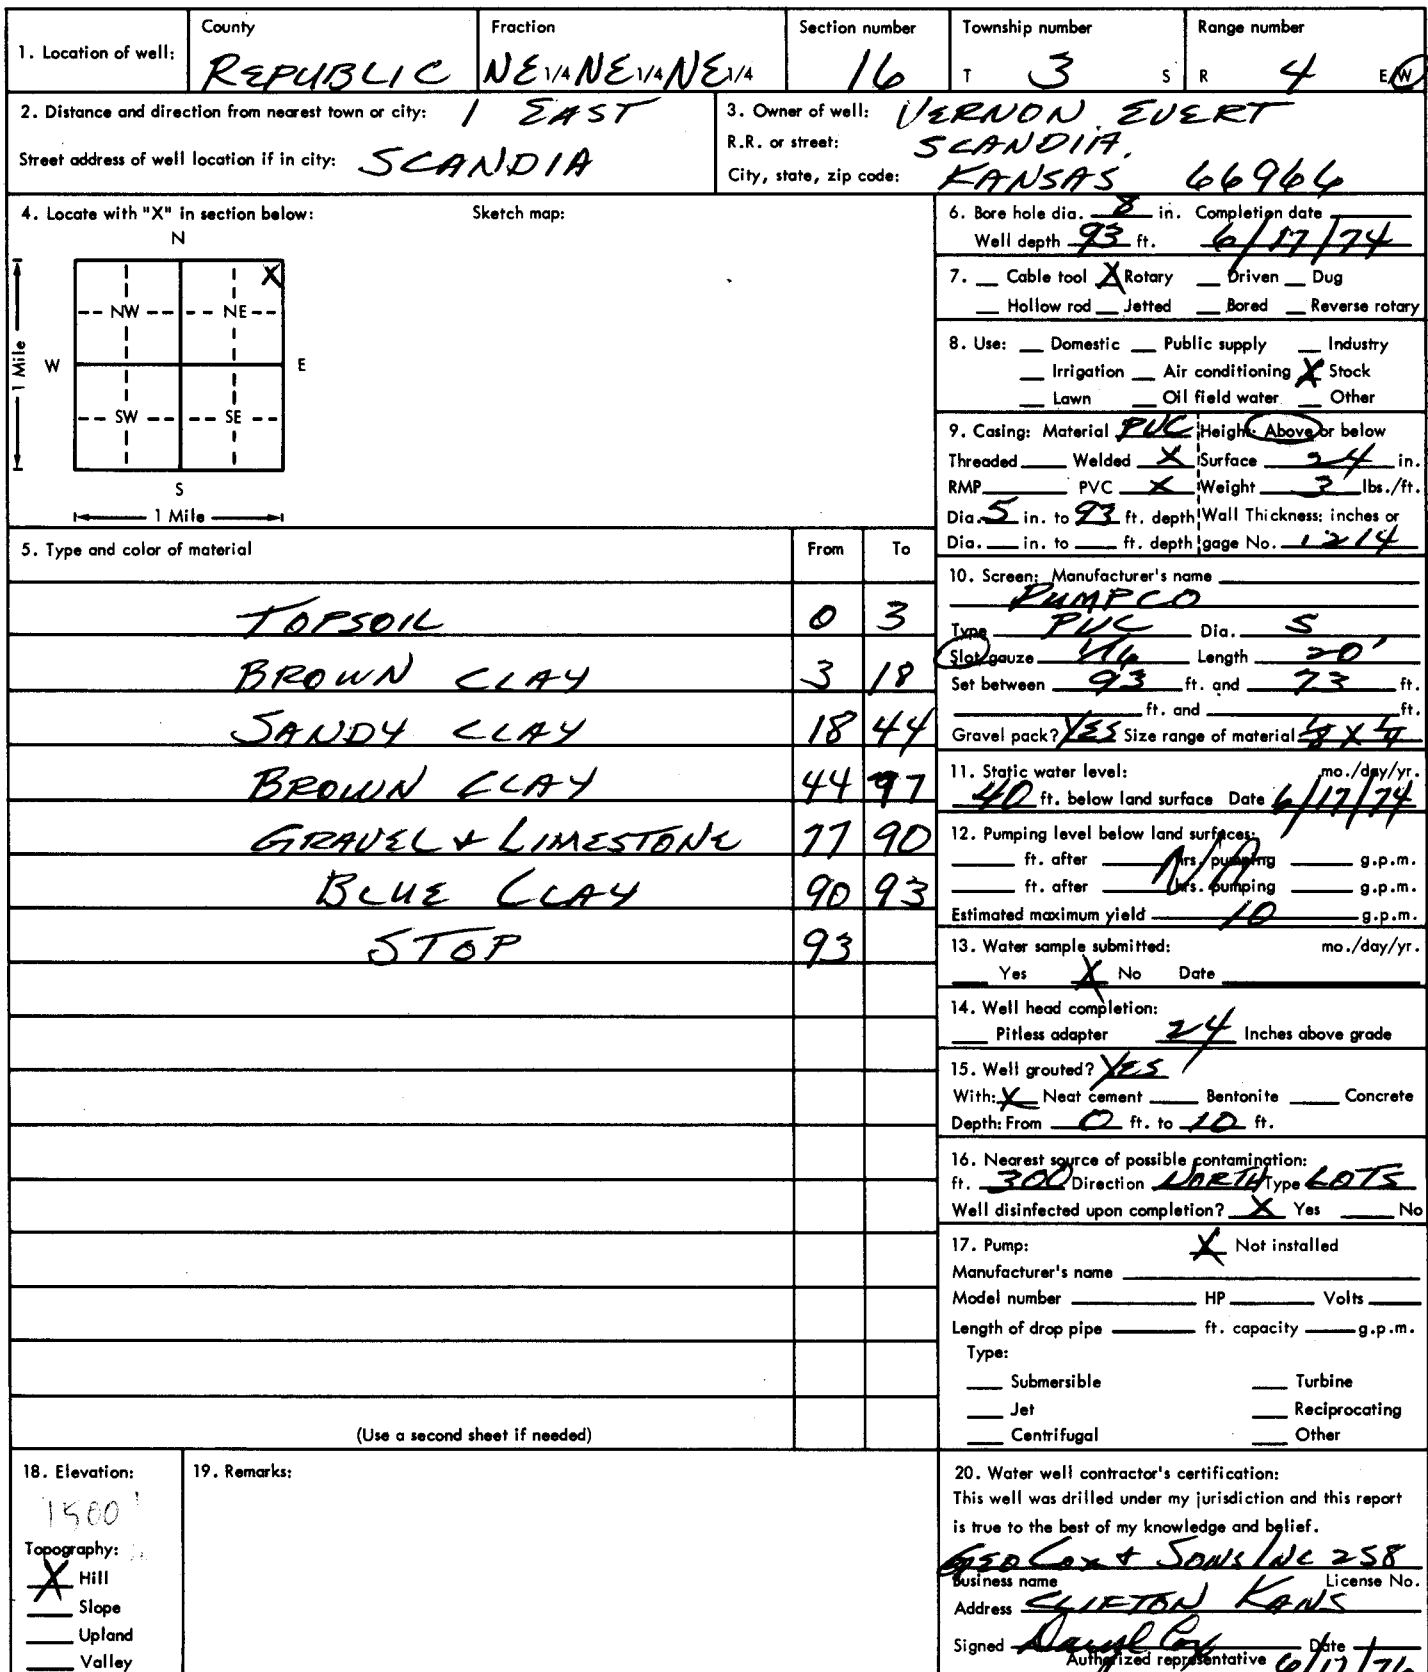 1. Location of well: County REPUBLIC Fraction NE 1/4 NE 1/4 NE 1/4 Section number 16 Township number T 3 S Range number R 4 E/W
2. Distance and direction from nearest town or city: 1 EAST
Street address of well location if in city: SCANDIA
3. Owner of well: VERNON EVERT
R.R. or street: SCANDIA,
City, state, zip code: KANSAS 66966
4. Locate with "X" in section below: Sketch map:
N
X
NW NE
W E
1 Mile
SW SE
S
1 Mile
5. Type and color of material From To
TOPSOIL 0 3
BROWN CLAY 3 18
SANDY CLAY 18 44
BROWN CLAY 44 77
GRAVEL & LIMESTONE 77 90
BLUE CLAY 90 93
STOP 93
(Use a second sheet if needed)
6. Bore hole dia. 8 in. Completion date
Well depth 93 ft. 6/17/74
7. Cable tool X Rotary Driven Dug
Hollow rod Jetted Bored Reverse rotary
8. Use: Domestic Public supply Industry
Irrigation Air conditioning X Stock
Lawn Oil field water Other
9. Casing: Material PVC Height: Above or below
Threaded Welded X Surface 24 in.
RMP PVC X Weight 3 lbs./ft.
Dia. 5 in. to 93 ft. depth Wall Thickness: inches or
Dia. in. to ft. depth gage No. .214
10. Screen: Manufacturer's name
PUMPCO
Type PVC Dia. 5
Slot/gauze 1/16 Length 20'
Set between 93 ft. and 73 ft.
ft. and ft.
Gravel pack? YES Size range of material 1/8 X 1/4
11. Static water level: mo./day/yr.
40 ft. below land surface Date 6/17/74
12. Pumping level below land surfaces:
ft. after hrs. pumping g.p.m.
N/A
ft. after hrs. pumping g.p.m.
Estimated maximum yield 10 g.p.m.
13. Water sample submitted: mo./day/yr.
Yes X No Date
14. Well head completion:
Pitless adapter 24 Inches above grade
15. Well grouted? YES
With: X Neat cement Bentonite Concrete
Depth: From 0 ft. to 10 ft.
16. Nearest source of possible contamination:
ft. 300 Direction NORTH Type LOTS
Well disinfected upon completion? X Yes No
17. Pump: X Not installed
Manufacturer's name
Model number HP Volts
Length of drop pipe ft. capacity g.p.m.
Type:
Submersible Turbine
Jet Reciprocating
Centrifugal Other
18. Elevation:
1500'
Topography:
X Hill
Slope
Upland
Valley
19. Remarks:
20. Water well contractor's certification:
This well was drilled under my jurisdiction and this report
is true to the best of my knowledge and belief.
GEO COX & SONS INC 258
Business name License No.
Address CLIFTON KANS
Signed Daryl Cox Date
Authorized representative 6/17/76